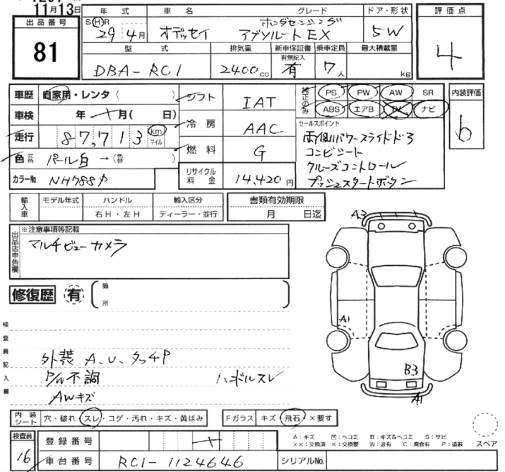 11月13日
出品番号
81
年式
S H R
29年4月
オデッセイ
グレード
ホンダセンシング
アブソルートEX
ドア・形状
5W
評価点
4
型式
DBA-RC1
排気量
2400cc
新車保証書
有無記入
有
乗車定員
7人
最大積載量
kg
車歴 自家用・レンタ( )
シフト
IAT
PS PW AW SR
ABS エアB ナビ
内装評価
b
車検 年 月( 日)
冷房
AAC
セールスポイント
両側パワースライドドア
コンビシート
クルーズコントロール
プッシュスタートボタン
走行 87,713 km マイル
燃料
G
色 パール白→
カラーNo NH788P
リサイクル料金
14,420円
輸入車
モデル年式
ハンドル
右H・左H
輸入区分
ディーラー・並行
書類有効期限
月 日迄
出品店申告欄
※注意事項等記載
マルチビューカメラ
修復歴 有
箇所
検査員記入欄
外装 A.U.タッチP
P/W不調
ハンドルスレ
AWキズ
A3
A1
B3
A1
内装シート 穴・破れ・スレ・コゲ・汚れ・キズ・黄ばみ
Fガラス キズ 飛石 ×要す
スペア
検査員
16
登録番号
車台番号
RC1-1124646
シリアルNo.
A:キズ